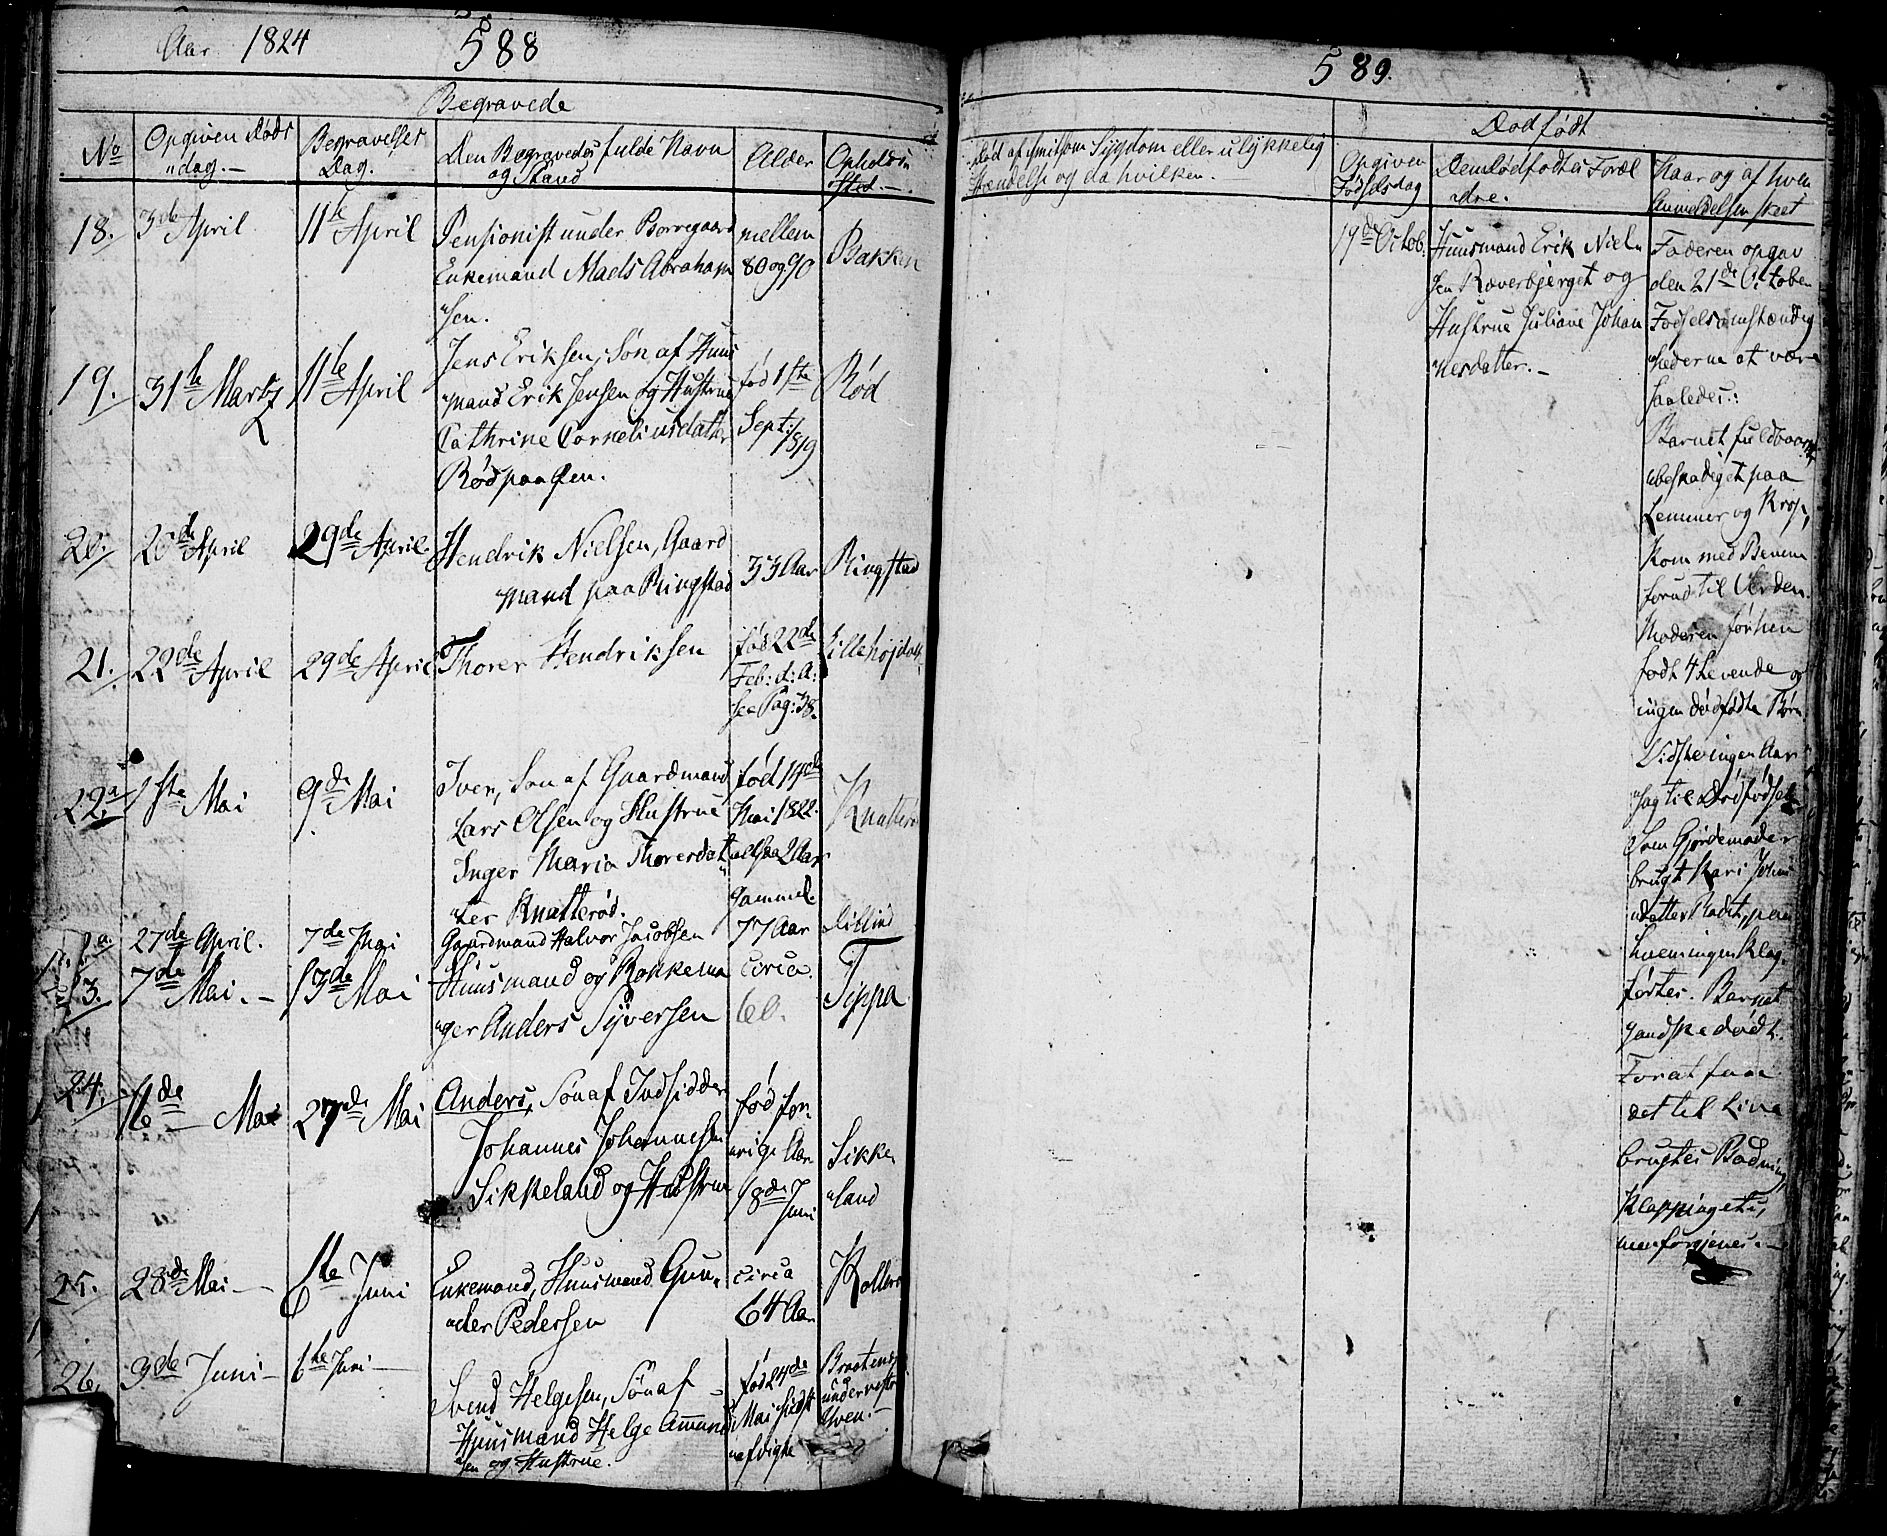 Aar 1824 588
Begravede
No
Opgiven Døds
dag.
Begravelses
Dag.
Den Begravedes fulde Navn
og Stand
Alder
Opholds
Sted.
18.
3de April
11te April
Pensionist under Borregaard
Enkemand Mads Abraham
sen.
mellem
80 og 90
Bakken
19.
31te Martz
11te April
Jens Eriksen, Søn af Huus
mand Erik Jensen og Hustrue
Cathrine Cornelius datter
Rød paa Øen.
fød 1ste
Sept: 1819
Rød
20.
20de April
29de April.
Hendrik Nielsen, Gaard
mand paa Ringstad
33 Aar
Ringstad
21.
22de April
29de April
Thorer Hendriksen
fød 22de
Feb: d: A:
see Pag: 38.
Lillehøjdal
22a
1ste Mai
9de Mai
Iver, Søn af Gaardmand
Lars Olsen og Hustrue
Inger Maria Thoresdat
ter Knatterød.
fød 14de
Mai 1822.
altsaa 2 Aar
gammel.
Knatterø
27de April.
7de Mai
Gaardmand Halvor Jacobsen
77 Aar
Dilling
23.
7de Mai.
13de Mai
Huusmand og Rokkema
ger Anders Syversen
circa
60.
Tippa
24.
16de Mai
27de Mai
Anders, Søn af Indsidder
Johannes Johannesen
Sikkeland og Hustrue
fød for
rige Aar
18de Juni
Sikke
land
25.
28de Mai
6te Juni
Enkemand, Huusmand Gun
der Pedersen
circa
64 Aar
Kollerø
26.
3de Juni
6te Juni
Svend Helgesen, Søn af
Huusmand Helge Amund
sen og Hustrue.
fød 24de
Mai sidst
afvigte
Braaten
under
Hven.
589.
Død af smitsom Sygdom eller ulykkelig
Hændelse og da hvilken.
Dødfødt
Opgiven
Fødselsdag
Den Dødfødtes Foræl
dre.
Naar og af hvem
Anmeldelsen skeet
19de Octob.
Huusmand Erik Niel
sen Ræverbjerget og
Hustrue Juliane Johan
nesdatter.
Faderen opgav
den 21de October
Fødselsomstændig
hederne at være
saaledes:
Barnet fuldbaaren,
ubeskadiget paa
Lemmer og Krop,
kom med Benene
forud til Verden.
Moderen forhen
født 4 Levende og
ingen dødfødte Børn
Vidste ingen Aar
sag til Dødfødsel
Som Gjordemoder
brugt Kari Johns
datter Rødt, paa
hvem ingen Klag
førtes. Barnet
ganske dødt.
For at faae
det til Live
brugtes Badning
Klapping etc,
men forgjeves.